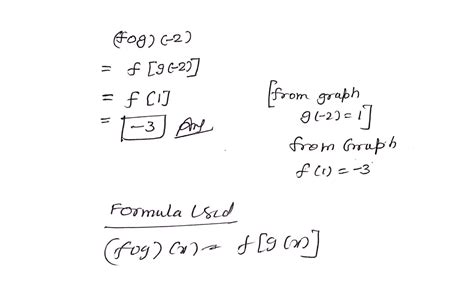 (fog) (-2)
= f [g(-2)]
= f [1]
= -3 Ans
[from graph
g(-2) = 1]
from Graph
f(1) = -3
Formula Used
(fog) (x) = f[g(x)]